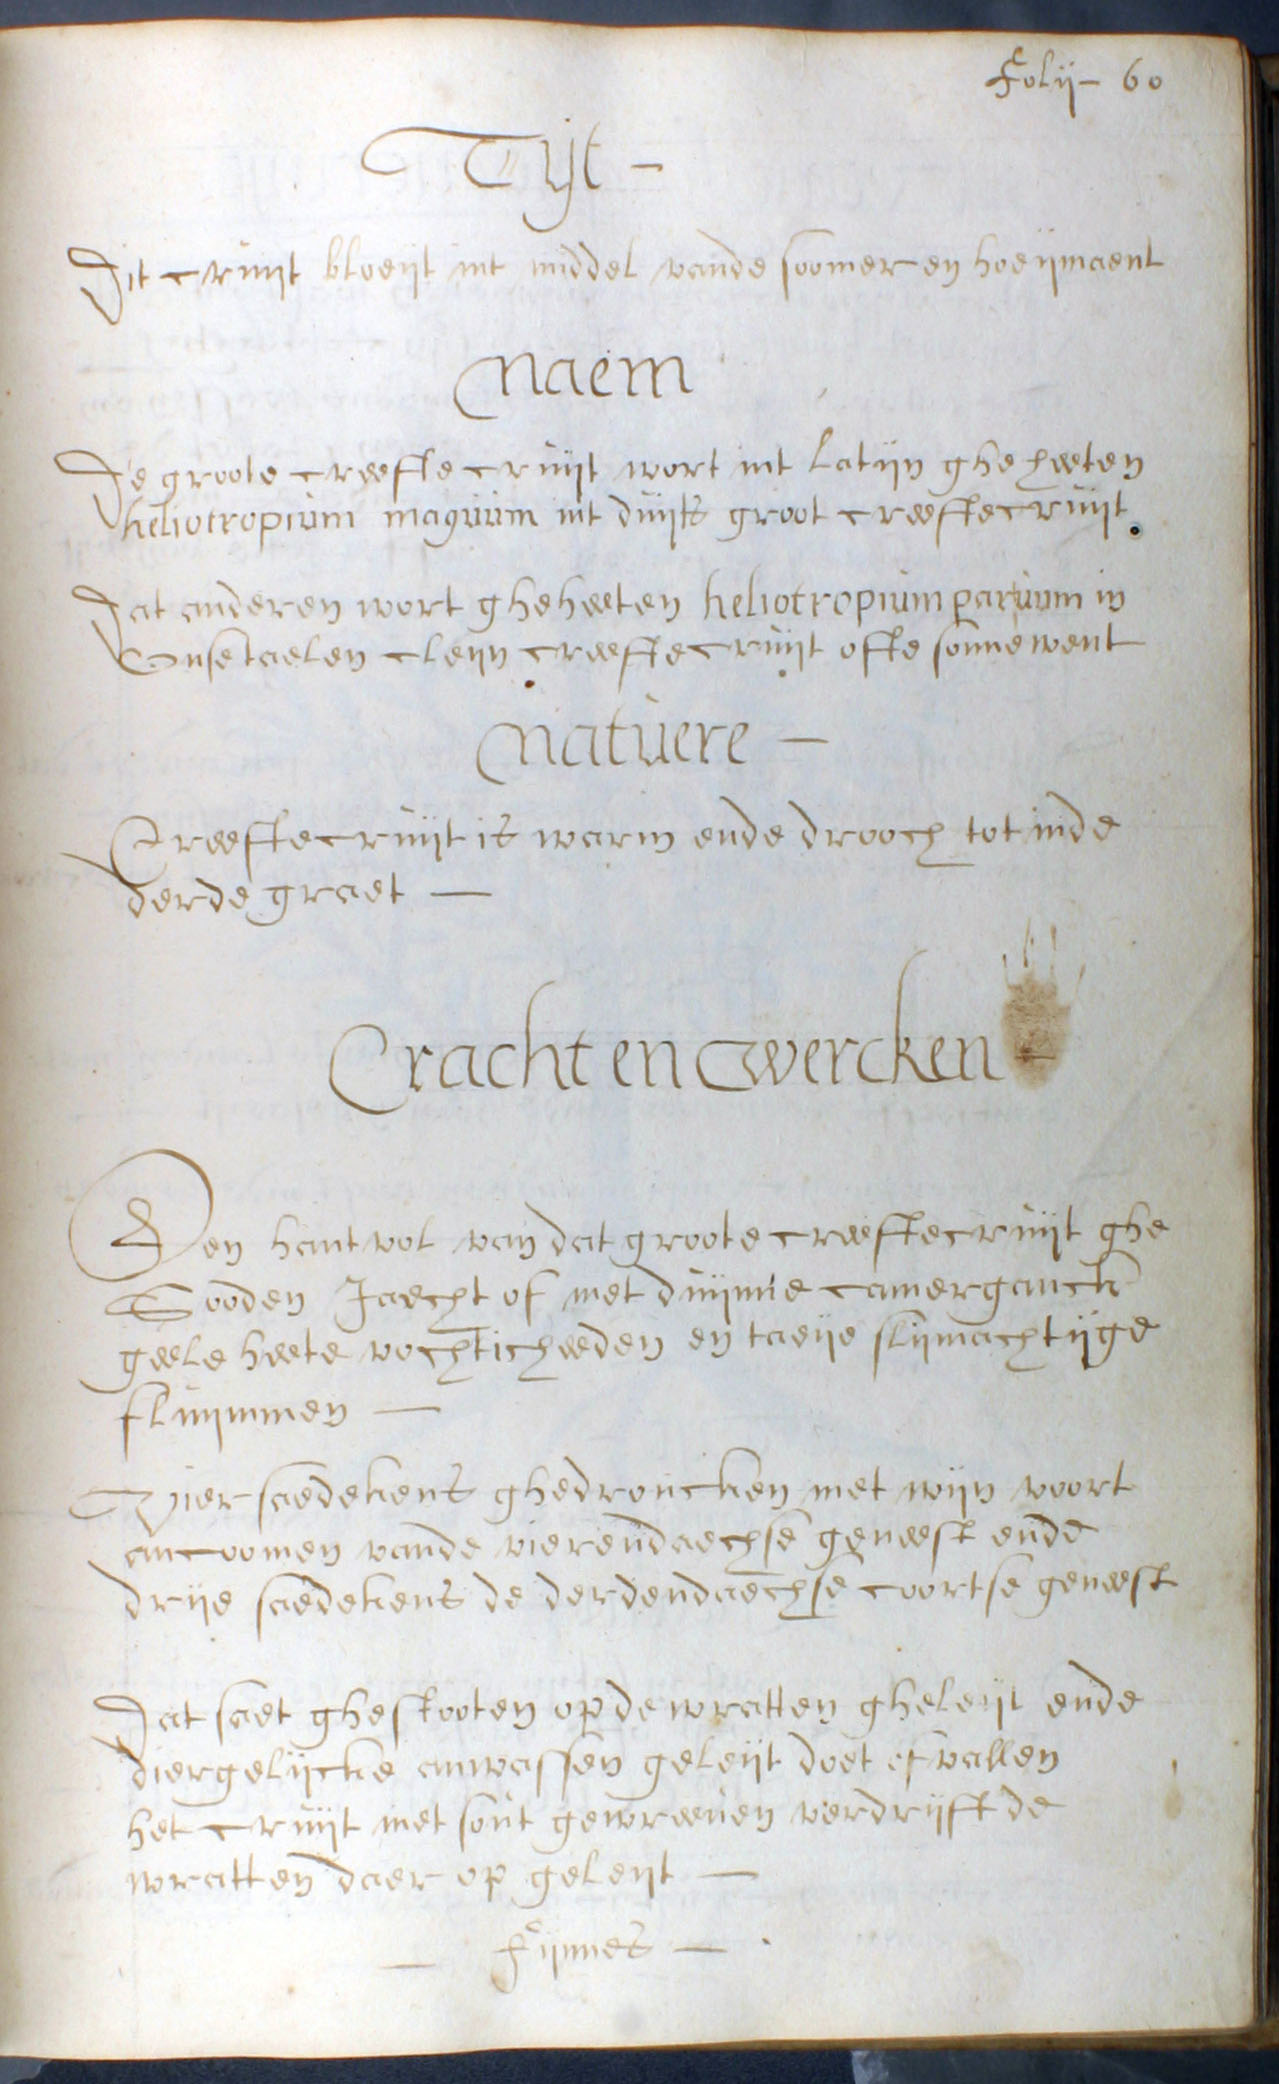 Folij - 60
Tijt -
Dit cruijt bloeijt int middel vande soomer en hoeijmaent
Naem
De groote creeftecruijt wort int Latijn gheheeten
heliotropium magnum int duijts groot creeftecruijt.
Dat anderen wort gheheeten heliotropium parvum in
Onse taelen cleijn creeftecruijt ofte sonnewent
Natuere -
Creeftecruijt is warm ende drooch tot inde
derde graet -
Cracht en wercken -
Een hant vol van dat groote creeftecruijt ghe
Sooden Jaecht of met duijnne camerganck
geele heete vochticheeden en taeije slijmachtijge
fluijmmen -
Vier saedekens ghedroncken met wijn voort
ancoomen vande vierendaechse geneest ende
drije saedekens de derdendaechse coortse geneest
Dat saet ghestooten op de wratten gheleijt ende
diergelijcke anwassen geleijt doet afvallen
het cruijt met sout gewreeven verdrijft de
wratten daer op geleijt -
- Fijnnes -